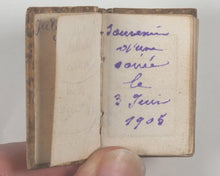 Souvenir
d'une
soirée
le
3 Juin
1905